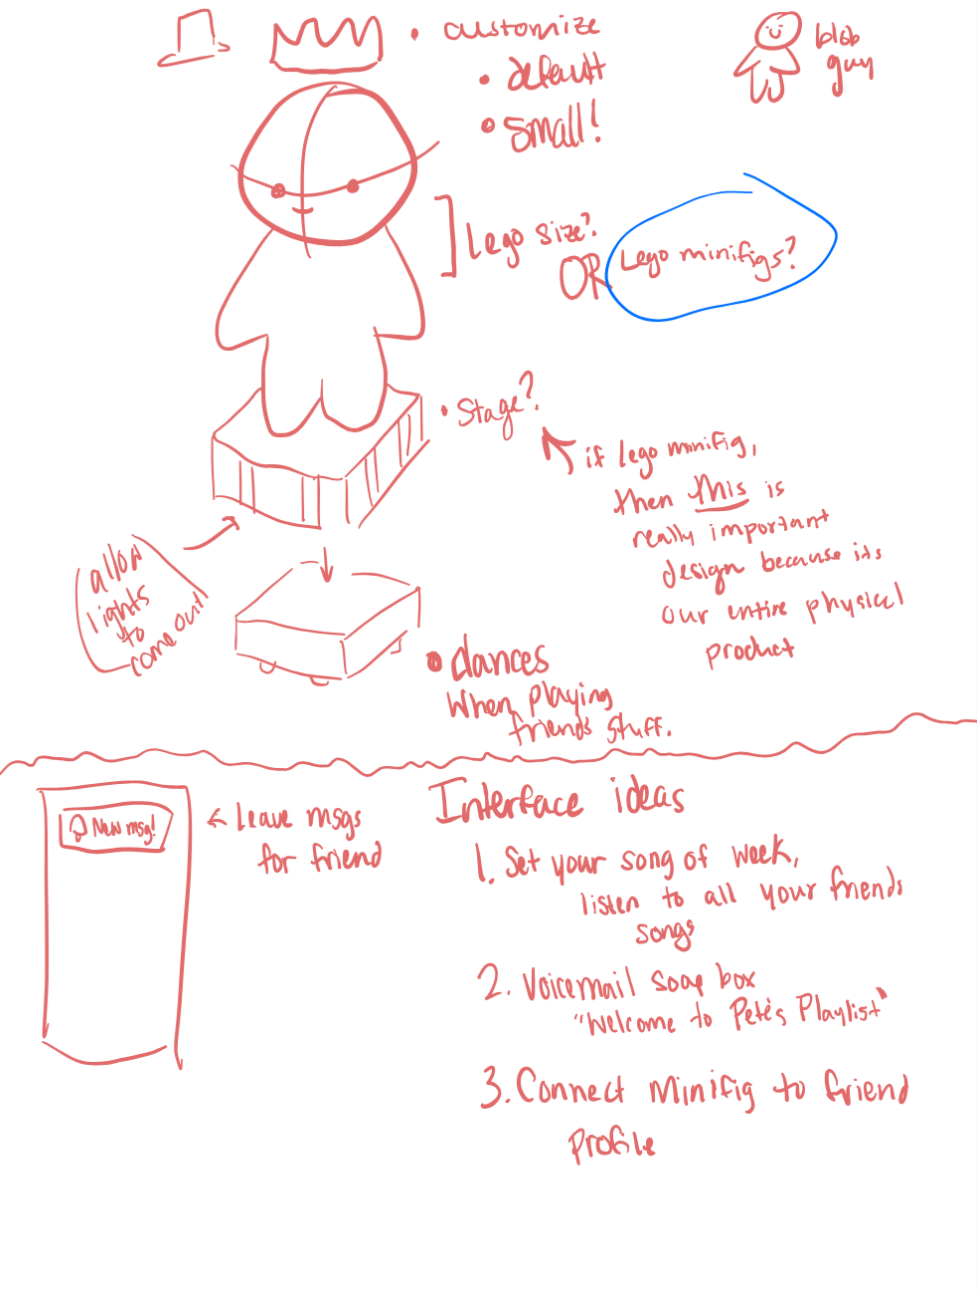 • customize
• default
• small!
blob
guy
Lego size?
OR
Lego minifigs?
• Stage?
if lego minifig,
then this is
really important
design because its
our entire physical
product
allow
lights
to
come out!
• dances
When playing
friends stuff.
New msg!
← Leave msgs
for friend
Interface ideas
1. Set your song of week,
listen to all your friends
songs
2. Voicemail soap box
"Welcome to Pete's Playlist"
3. Connect Minifig to friend
Profile